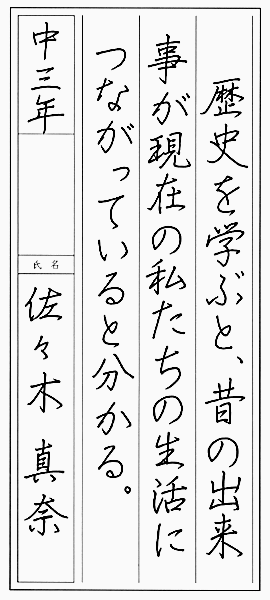 歴史を学ぶと、昔の出来
事が現在の私たちの生活に
つながっていると分かる。
中三年
氏名
佐々木 真奈